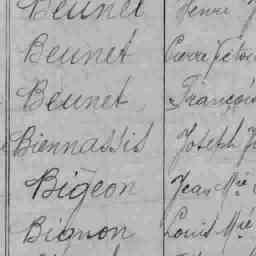 Beunet Henri
Beunet Pierre Victor
Beunet François
Biennassis Joseph
Bigeon Jean Mie
Bignon Louis Mie